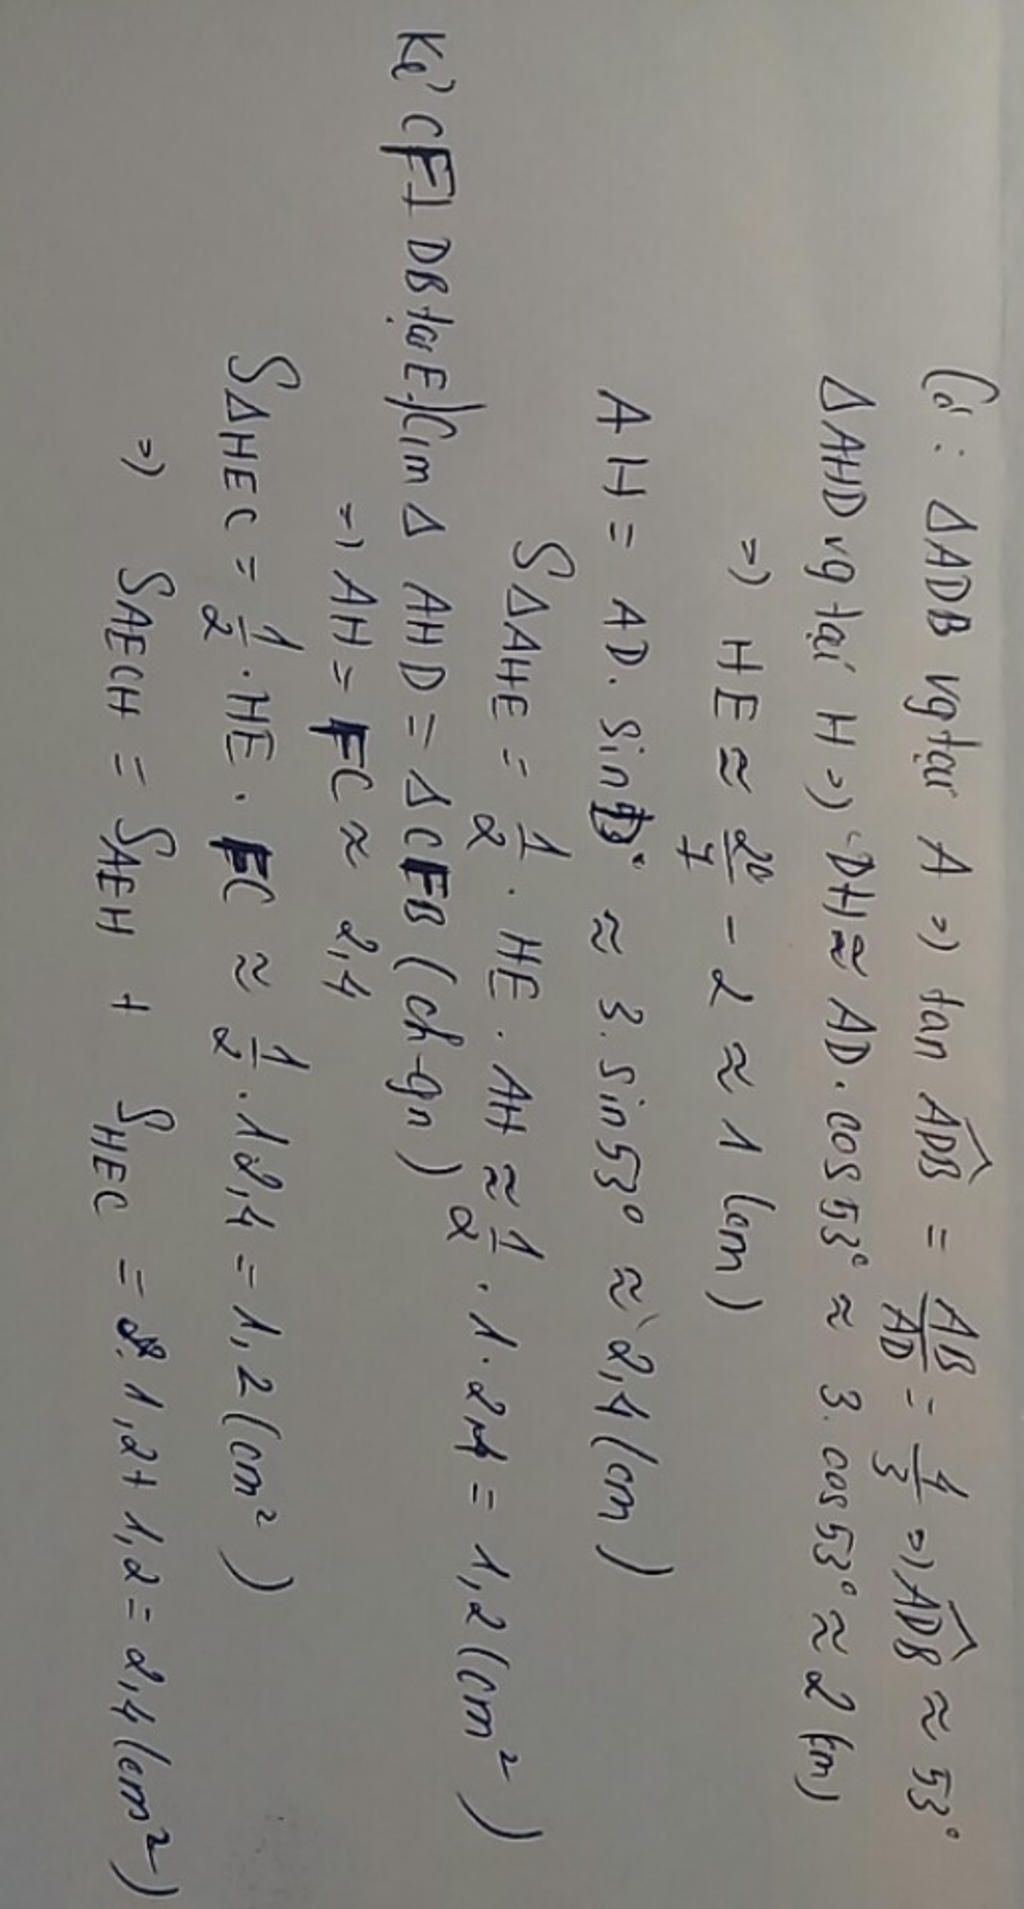 Có: ΔADB vg tại A => tan ADB = AB/AD = 4/3 => ADB ≈ 53°
ΔAHD vg tại H => DH ≈ AD. cos 53° ≈ 3. cos 53° ≈ 2 (cm)
=> HE ≈ 20/7 - 2 ≈ 1 (cm)
AH = AD. sin D ≈ 3. sin 53° ≈ 2,4 (cm)
SΔAHE = 1/2 . HE . AH ≈ 1/2 . 1 . 2,4 = 1,2 (cm²)
Kẻ CF ⊥ DB tại F. C/m Δ AHD = Δ CFB (ch-gn)
=> AH = FC ≈ 2,4
SΔHEC = 1/2 . HE . FC ≈ 1/2 . 1 2,4 = 1,2 (cm²)
=> SAECH = SAEH + SHEC = 1,2 + 1,2 = 2,4 (cm²)